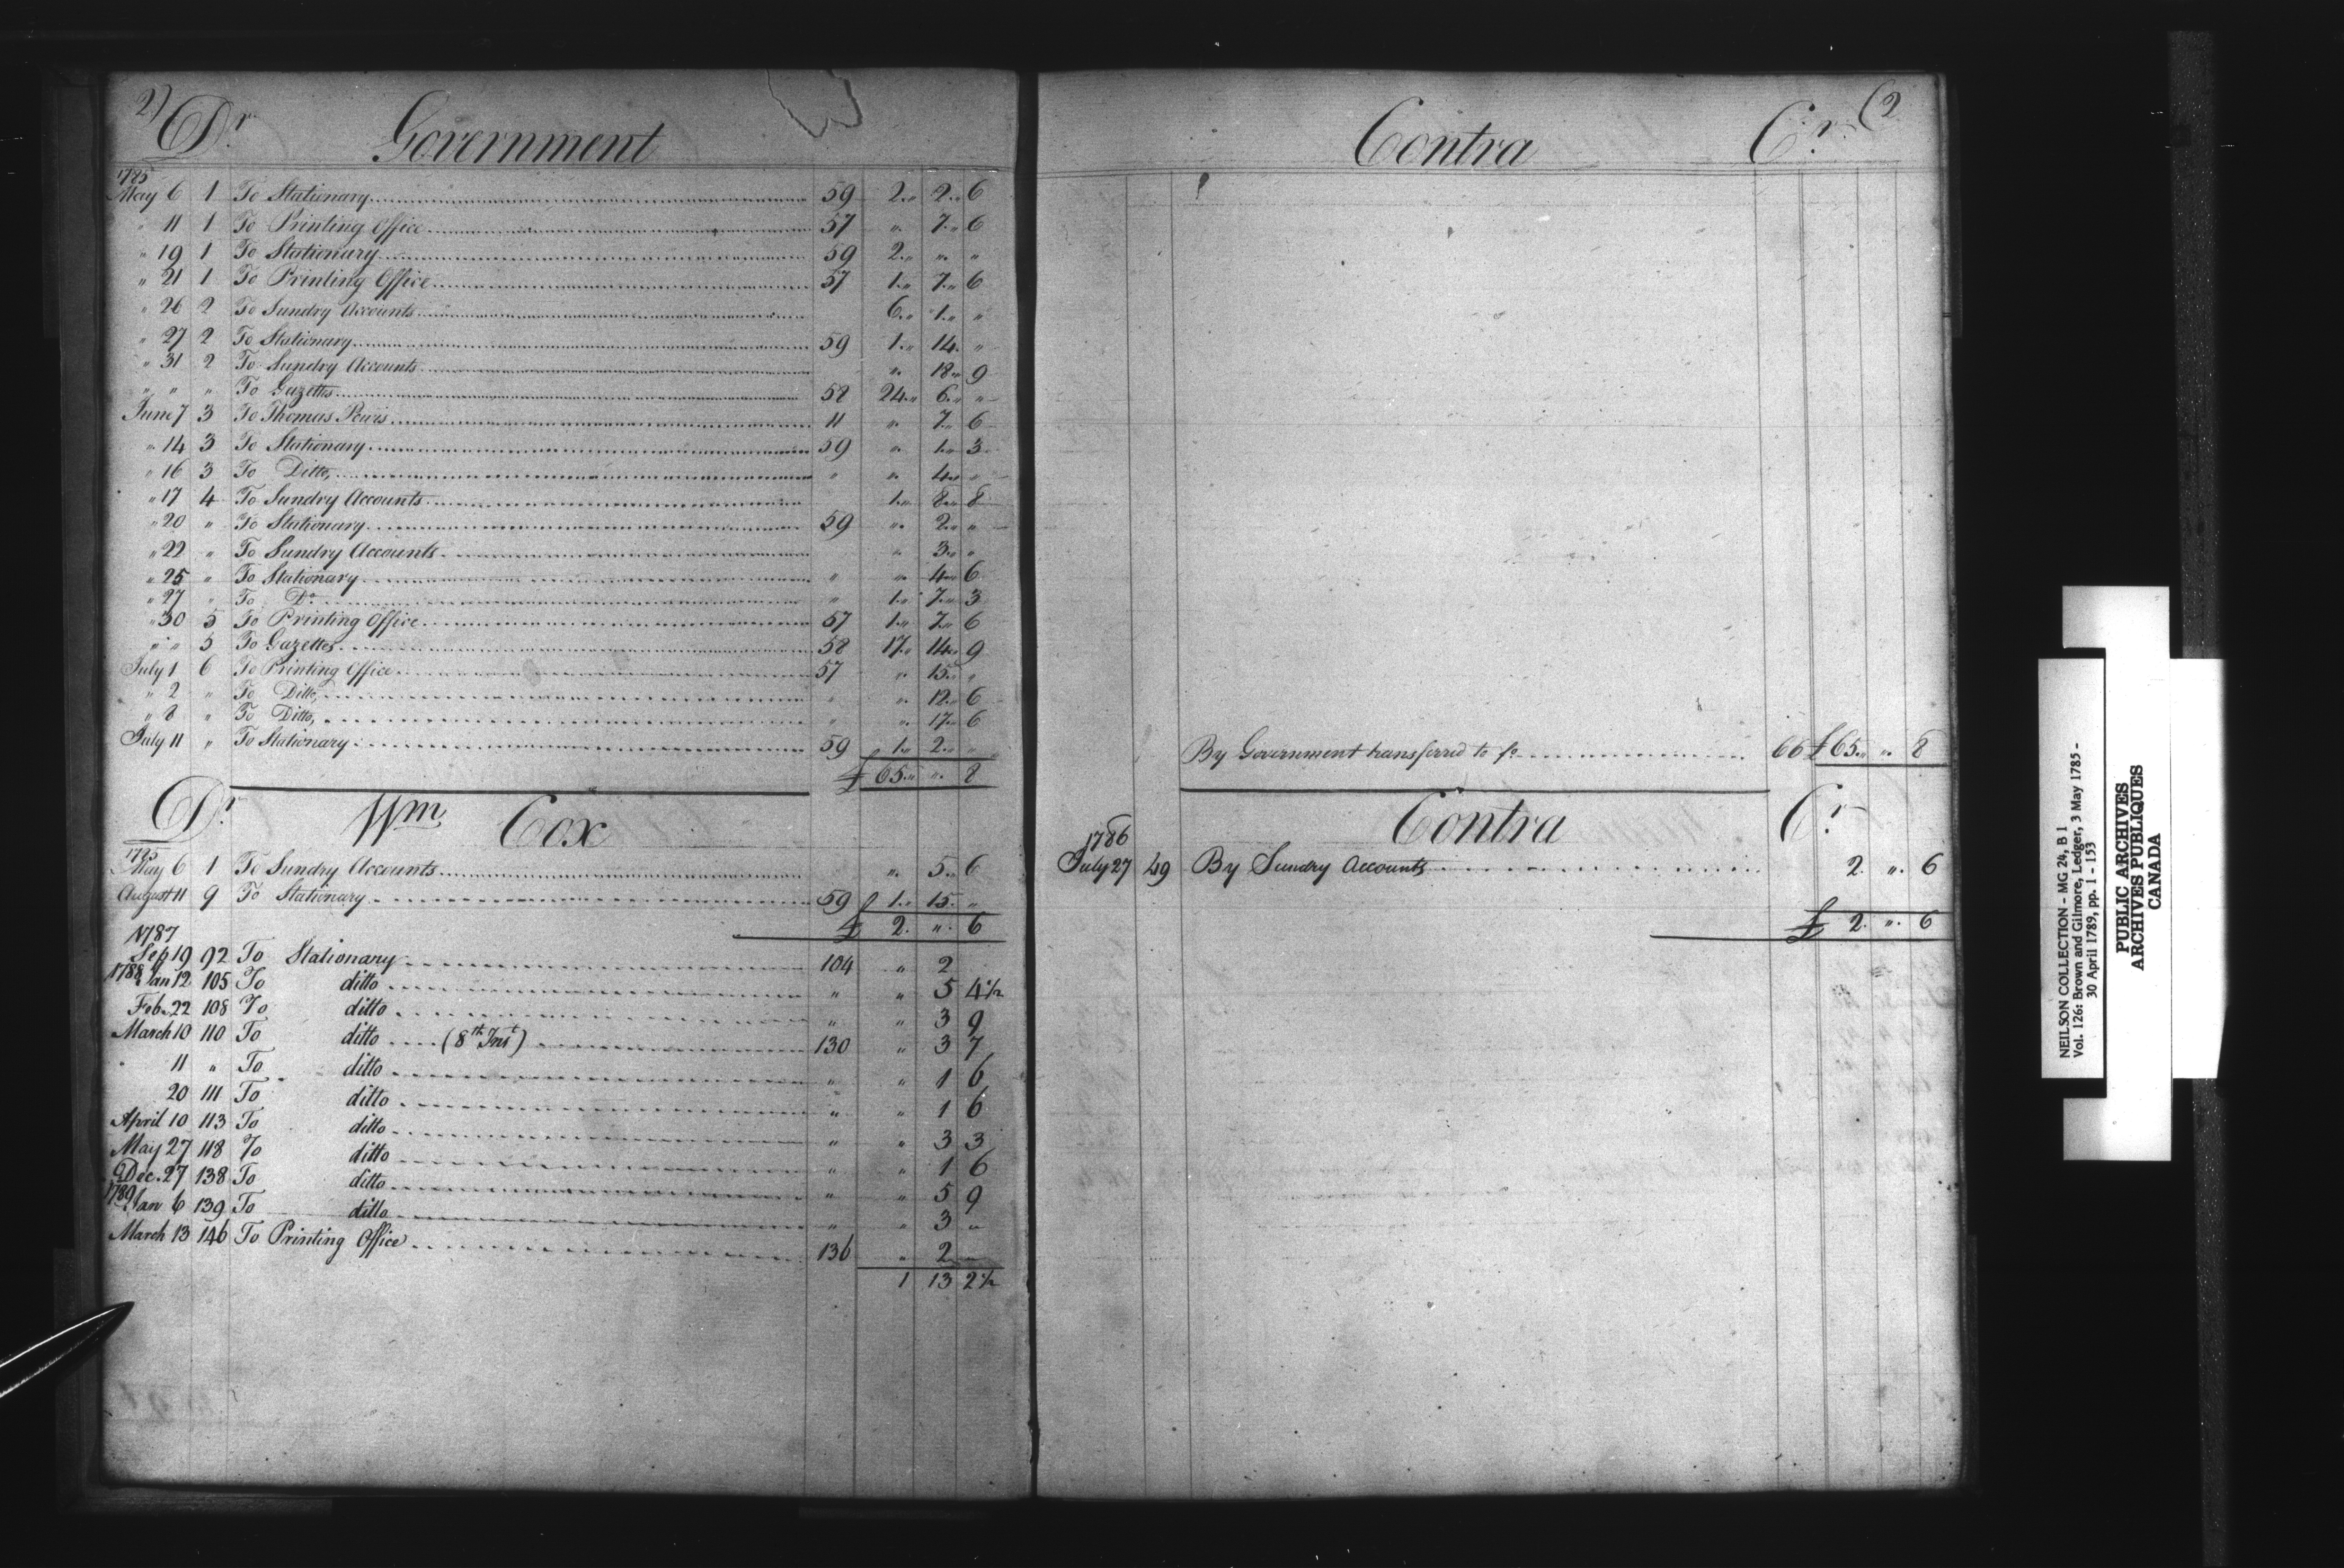 2) Dr. Government
1785
May 6 1 To Stationary 59 2 „ 2 „ 6
„ 11 1 To Printing Office 57 „ 7 „ 6
„ 19 1 To Stationary 59 2 „ „ „
„ 21 1 To Printing Office 57 1 „ 7 „ 6
„ 26 2 To Sundry Accounts 6 „ 1 „ „
„ 27 2 To Stationary 59 1 „ 14 „
„ 31 2 To Sundry Accounts „ 18 „ 9
„ „ „ To Gazettes 58 24 „ 6 „ „
June 7 3 To Thomas Powis 11 „ 7 „ 6
„ 14 3 To Stationary 59 „ 1 „ 3
„ 16 3 To Ditto, „ „ 4 „ „
„ 17 4 To Sundry Accounts 1 „ 8 „ 8
„ 20 „ To Stationary 59 „ 2 „ „
„ 22 „ To Sundry Accounts „ 3 „ „
„ 25 „ To Stationary „ „ 4 „ 6
„ 27 „ To Do. „ 1 „ 7 „ 3
„ 30 5 To Printing Office 57 1 „ 7 „ 6
„ „ 5 To Gazettes 58 17 „ 14 „ 9
July 1 6 To Printing Office 57 „ 15 „ „
„ 2 „ To Ditto, „ „ 12 „ 6
„ 8 „ To Ditto, „ „ 17 „ 6
July 11 „ To Stationary 59 1 „ 2 „ „
£ 65 „ „ 8
Dr. Wm Cox
1785
May 6 1 To Sundry Accounts „ 5 „ 6
August 11 9 To Stationary 59 1 „ 15 „
£ 2 „ 6
1787
Sep 19 92 To Stationary 104 „ 2
1788 Jan 12 105 To ditto „ „ 5 4½
Feb. 22 108 To ditto „ „ 3 9
March 10 110 To ditto (8th Inst) 130 „ 3 7
11 „ To ditto „ „ 1 6
20 111 To ditto „ „ 1 6
April 10 113 To ditto „ „ 3 3
May 27 118 To ditto „ „ 1 6
Dec. 27 138 To ditto „ „ 5 9
1789 Jan 6 139 To ditto „ „ 3 „
March 13 146 To Printing Office 136 „ 2 —
1 13 2½
Contra Cr. (2
By Government transferred to fo 66 £ 65 „ „ 8
Contra Cr
1786
July 27 49 By Sundry Accounts 2 „ 6
£ 2 „ 6
NEILSON COLLECTION - MG 24, B 1
Vol. 126: Brown and Gilmore, Ledger, 3 May 1785 -
30 April 1789, pp. 1 - 153
PUBLIC ARCHIVES
ARCHIVES PUBLIQUES
CANADA